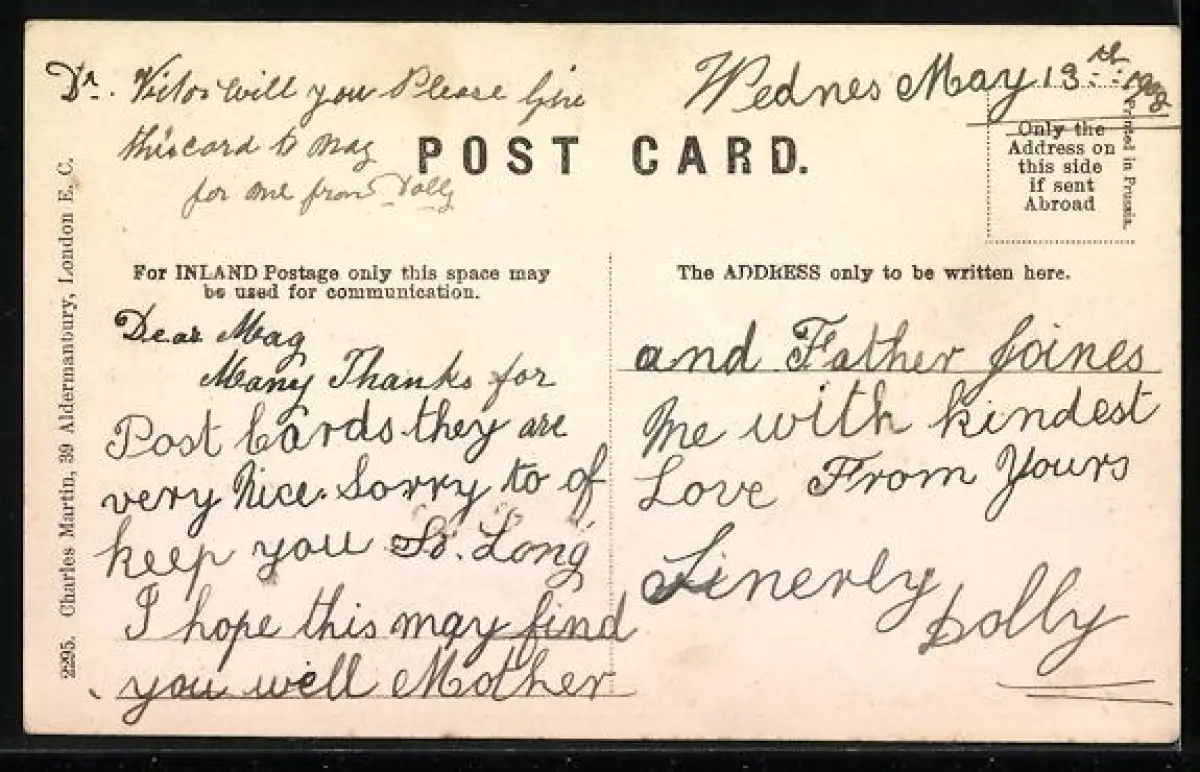 Dr. Victor will you Please Give
this card to Mag
for me from Dolly
Wednes May 13th
POST CARD.
Only the
Address on
this side
if sent
Abroad
Printed in Prussia.
2295. Charles Martin, 39 Aldermanbury, London E. C.
For INLAND Postage only this space may
be used for communication.
Dear Mag
Many Thanks for
Post Cards they are
very Nice. Sorry to of
keep you So. Long
I hope this may find
you well Mother
The ADDRESS only to be written here.
and Father Joines
Me with kindest
Love From Yours
Sinerly
Dolly